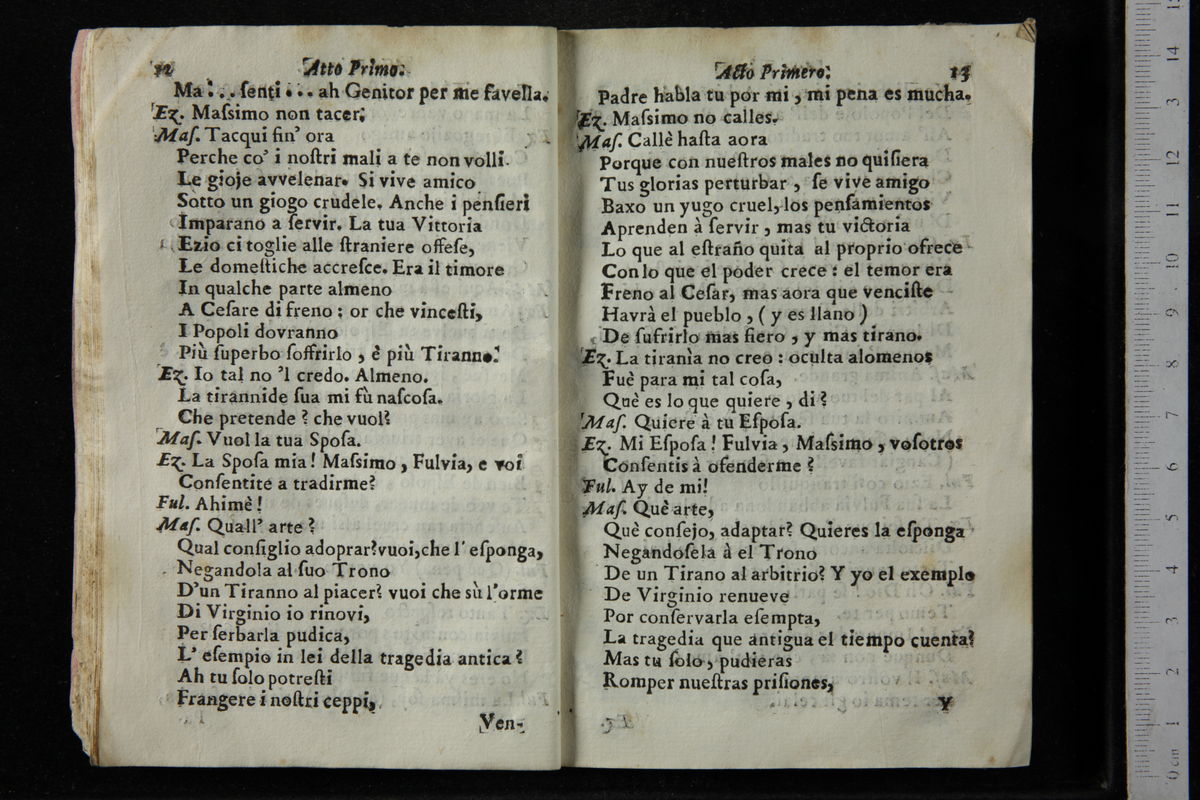 12 Atto Primo.
Ma!.. ſenti... ah Genitor per me favella.
Ez. Maſsimo non tacer.
Maſ. Tacqui fin' ora
Perche co' i noſtri mali a te non volli
Le gioje avvelenar. Si vive amico
Sotto un giogo crudele. Anche i penſieri
Imparano a ſervir. La tua Vittoria
Ezio ci toglie alle ſtraniere offeſe,
Le domeſtiche accreſce. Era il timore
In qualche parte almeno
A Ceſare di freno; or che vinceſti,
I Popoli dovranno
Più ſuperbo ſoffrirlo, è più Tiranno.
Ez. Io tal no 'l credo. Almeno.
La tirannide ſua mi fù naſcoſa.
Che pretende? che vuol?
Maſ. Vuol la tua Spoſa.
Ez. La Spoſa mia! Maſsimo, Fulvia, e voi
Conſentite a tradirme?
Ful. Ahimè!
Maſ. Quall' arte?
Qual conſiglio adoprar? vuoi, che l' eſponga,
Negandola al ſuo Trono
D'un Tiranno al piacer? vuoi che sù l'orme
Di Virginio io rinovi,
Per ſerbarla pudica,
L' eſempio in lei della tragedia antica?
Ah tu ſolo potreſti
Frangere i noſtri ceppi,
Ven-
Acto Primero. 13
Padre habla tu por mi, mi pena es mucha.
Ez. Maſsimo no calles.
Maſ. Callè haſta aora
Porque con nueſtros males no quiſiera
Tus glorias perturbar, ſe vive amigo
Baxo un yugo cruel, los penſamientos
Aprenden à ſervir, mas tu victoria
Lo que al eſtraño quita al proprio ofrece
Con lo que el poder crece: el temor era
Freno al Ceſar, mas aora que venciſte
Havrà el pueblo, (y es llano)
De sufrirlo mas fiero, y mas tirano.
Ez. La tiranìa no creo: oculta alomenos
Fuè para mi tal coſa,
Què es lo que quiere, di?
Maſ. Quiere à tu Eſpoſa.
Ez. Mi Eſpoſa! Fulvia, Maſsimo, voſotros
Conſentis à ofenderme?
Ful. Ay de mi!
Maſ. Què arte,
Què conſejo, adaptar? Quieres la eſponga
Negandoſela à el Trono
De un Tirano al arbitrio? Y yo el exemplo
De Virginio renueve
Por conſervarla eſempta,
La tragedia que antigua el tiempo cuenta?
Mas tu ſolo, pudieras
Romper nueſtras priſiones,
Y